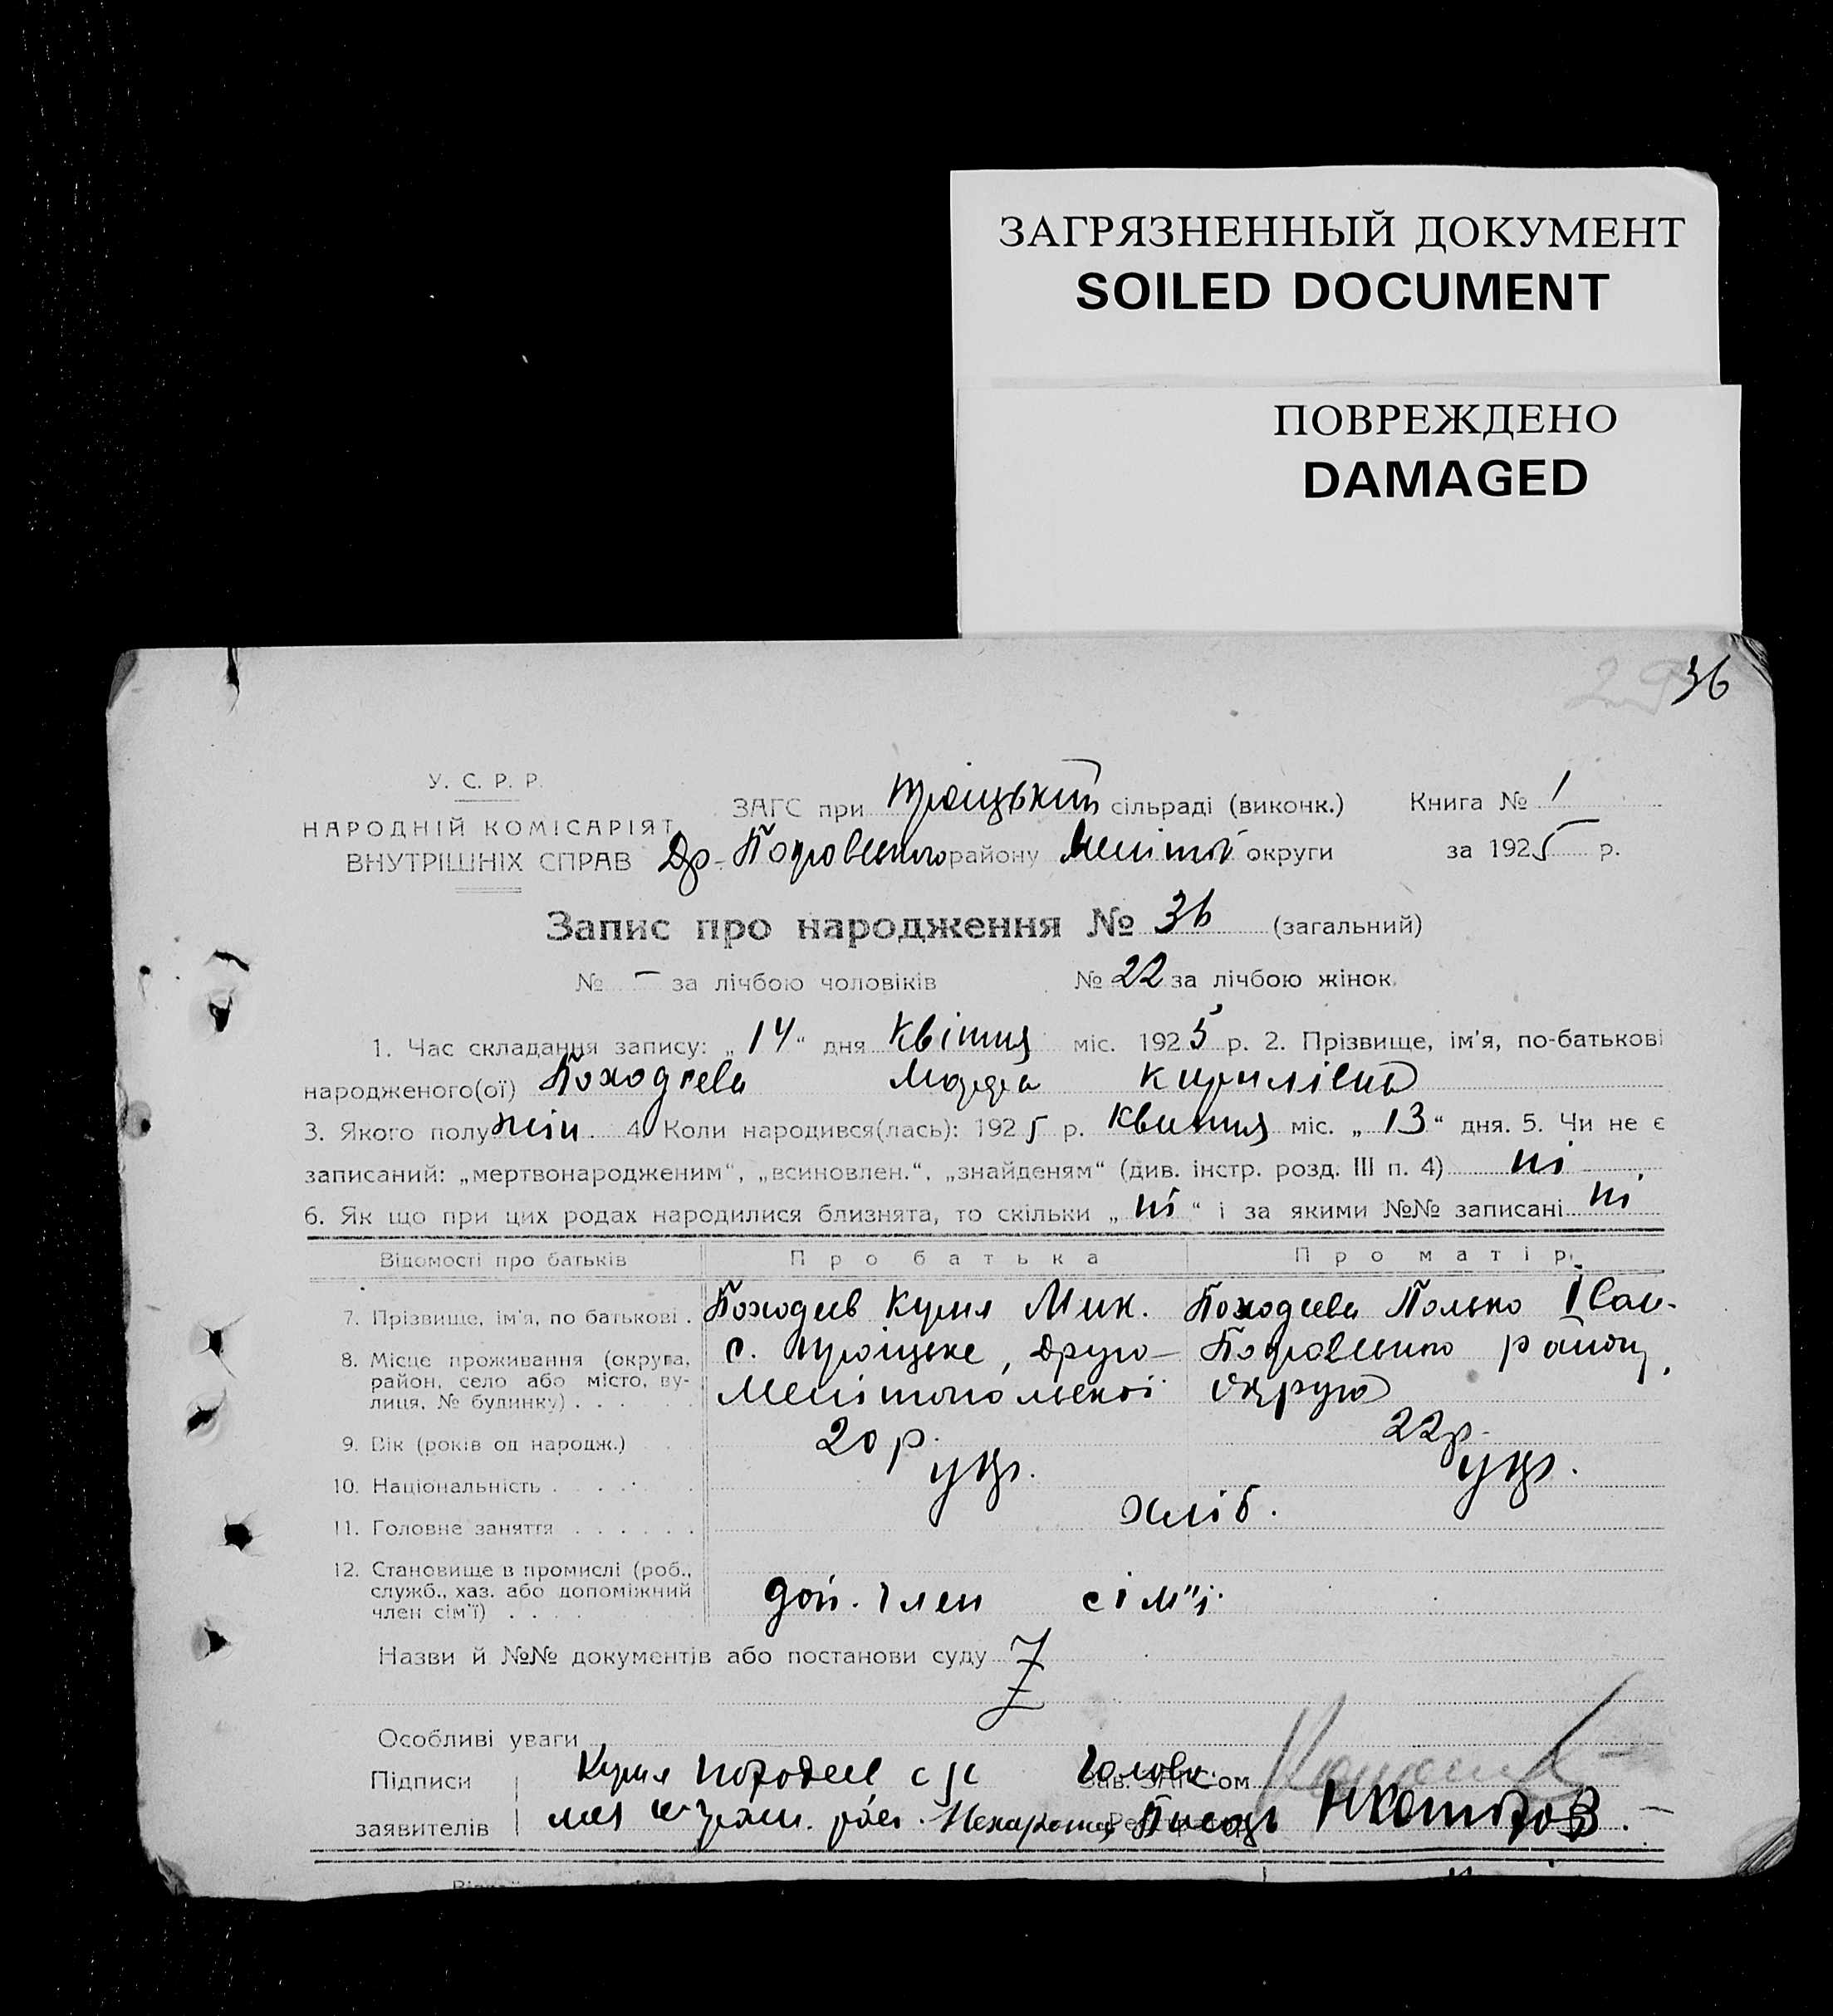 ЗАГРЯЗНЕННЫЙ ДОКУМЕНТ
SOILED DOCUMENT
ПОВРЕЖДЕНО
DAMAGED
36
У. С. Р. Р.
НАРОДНІЙ КОМІСАРІЯТ
ВНУТРІШНІХ СПРАВ
ЗАГС при Троіцькій сільраді (виконк.) Книга № 1
Др-Покровського району Меліт округи за 1925 р.
Запис про народження № 36 (загальний)
№ — за лічбою чоловіків № 22 за лічбою жінок.
1. Час складання запису: „14“ дня Квітня міс. 1925 р. 2. Прізвище, ім'я, по-батькові
народженого(ої) Походєева Марфа Кирилівна
3. Якого полу жін. 4. Коли народився(лась): 1925 р. Квитня міс. „13“ дня. 5. Чи не є
записаний: „мертвонародженим“, „всиновлен.“, „знайденям“ (див. інстр. розд. III п. 4) ні
6. Як що при цих родах народилися близнята, то скільки „ні“ і за якими №№ записані ні
Відомості про батьків Про батька Про матір.
7. Прізвище, ім'я, по батькові . Походеев Мик. Походеева Іван-
8. Місце проживання (округа, с. Троіцьке, Друго- Покровського району,
район, село або місто, ву- Мелітопольскоі округа
лиця, № будинку) . . .
9. Вік (років од народж.) 20 р. 22 р.
10. Національність . . . . . укр. укр.
11. Головне заняття . . . . . . хліб.
12. Становище в промислі (роб.,
служб., хаз. або допоміжний доп. член сім"ї
член сім'ї) . . . .
Назви й №№ документів або постанови суду
Особливі уваги
Підписи Голова Зав. ЗАГС'ом
заявителів